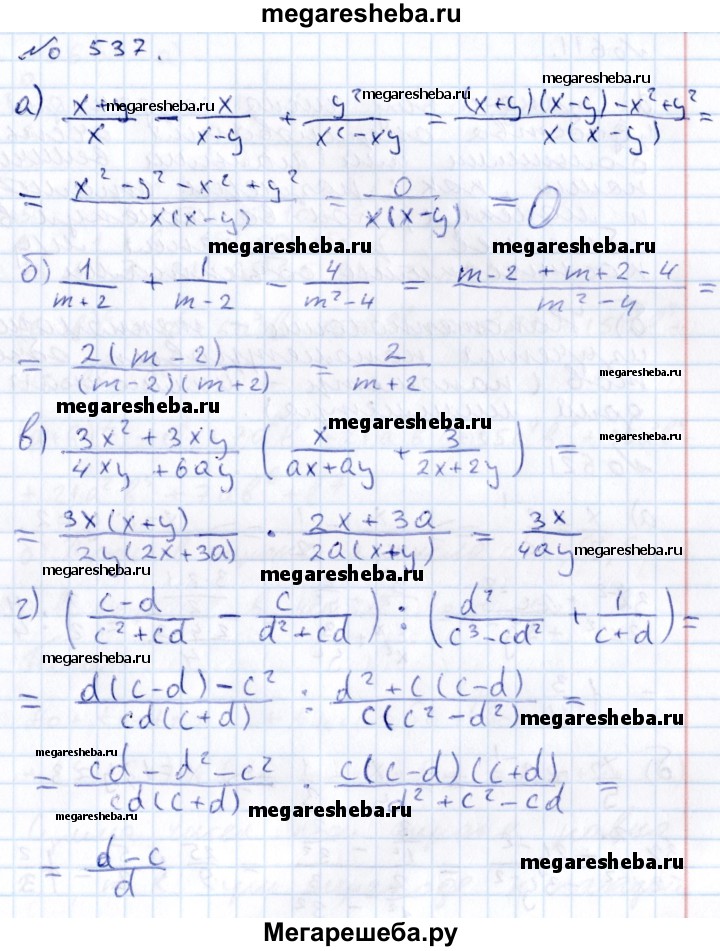 megaresheba.ru
№ 537.
а) (x+y)/x - x/(x-y) + y²/(x²-xy) = ((x+y)(x-y)-x²+y²)/(x(x-y)) =
megaresheba.ru megaresheba.ru megaresheba.ru
= (x²-y²-x²+y²)/(x(x-y)) = 0/(x(x-y)) = 0
megaresheba.ru megaresheba.ru
б) 1/(m+2) + 1/(m-2) - 4/(m²-4) = (m-2+m+2-4)/(m²-4) =
= 2(m-2)/((m-2)(m+2)) = 2/(m+2)
megaresheba.ru megaresheba.ru megaresheba.ru
в) (3x²+3xy)/(4xy+6ay) (x/(ax+ay) + 3/(2x+2y)) =
= 3x(x+y)/(2y(2x+3a)) · (2x+3a)/(2a(x+y)) = 3x/(4ay)
megaresheba.ru megaresheba.ru megaresheba.ru
г) ((c-d)/(c²+cd) - c/(d²+cd)) : (d²/(c³-cd²) + 1/(c+d)) =
megaresheba.ru
= (d(c-d)-c²)/(cd(c+d)) : (d²+c(c-d))/(c(c²-d²)) =
megaresheba.ru
megaresheba.ru
= (cd-d²-c²)/(cd(c+d)) · (c(c-d)(c+d))/(d²+c²-cd) =
megaresheba.ru megaresheba.ru
= (d-c)/d
megaresheba.ru
Мегарешеба.ру